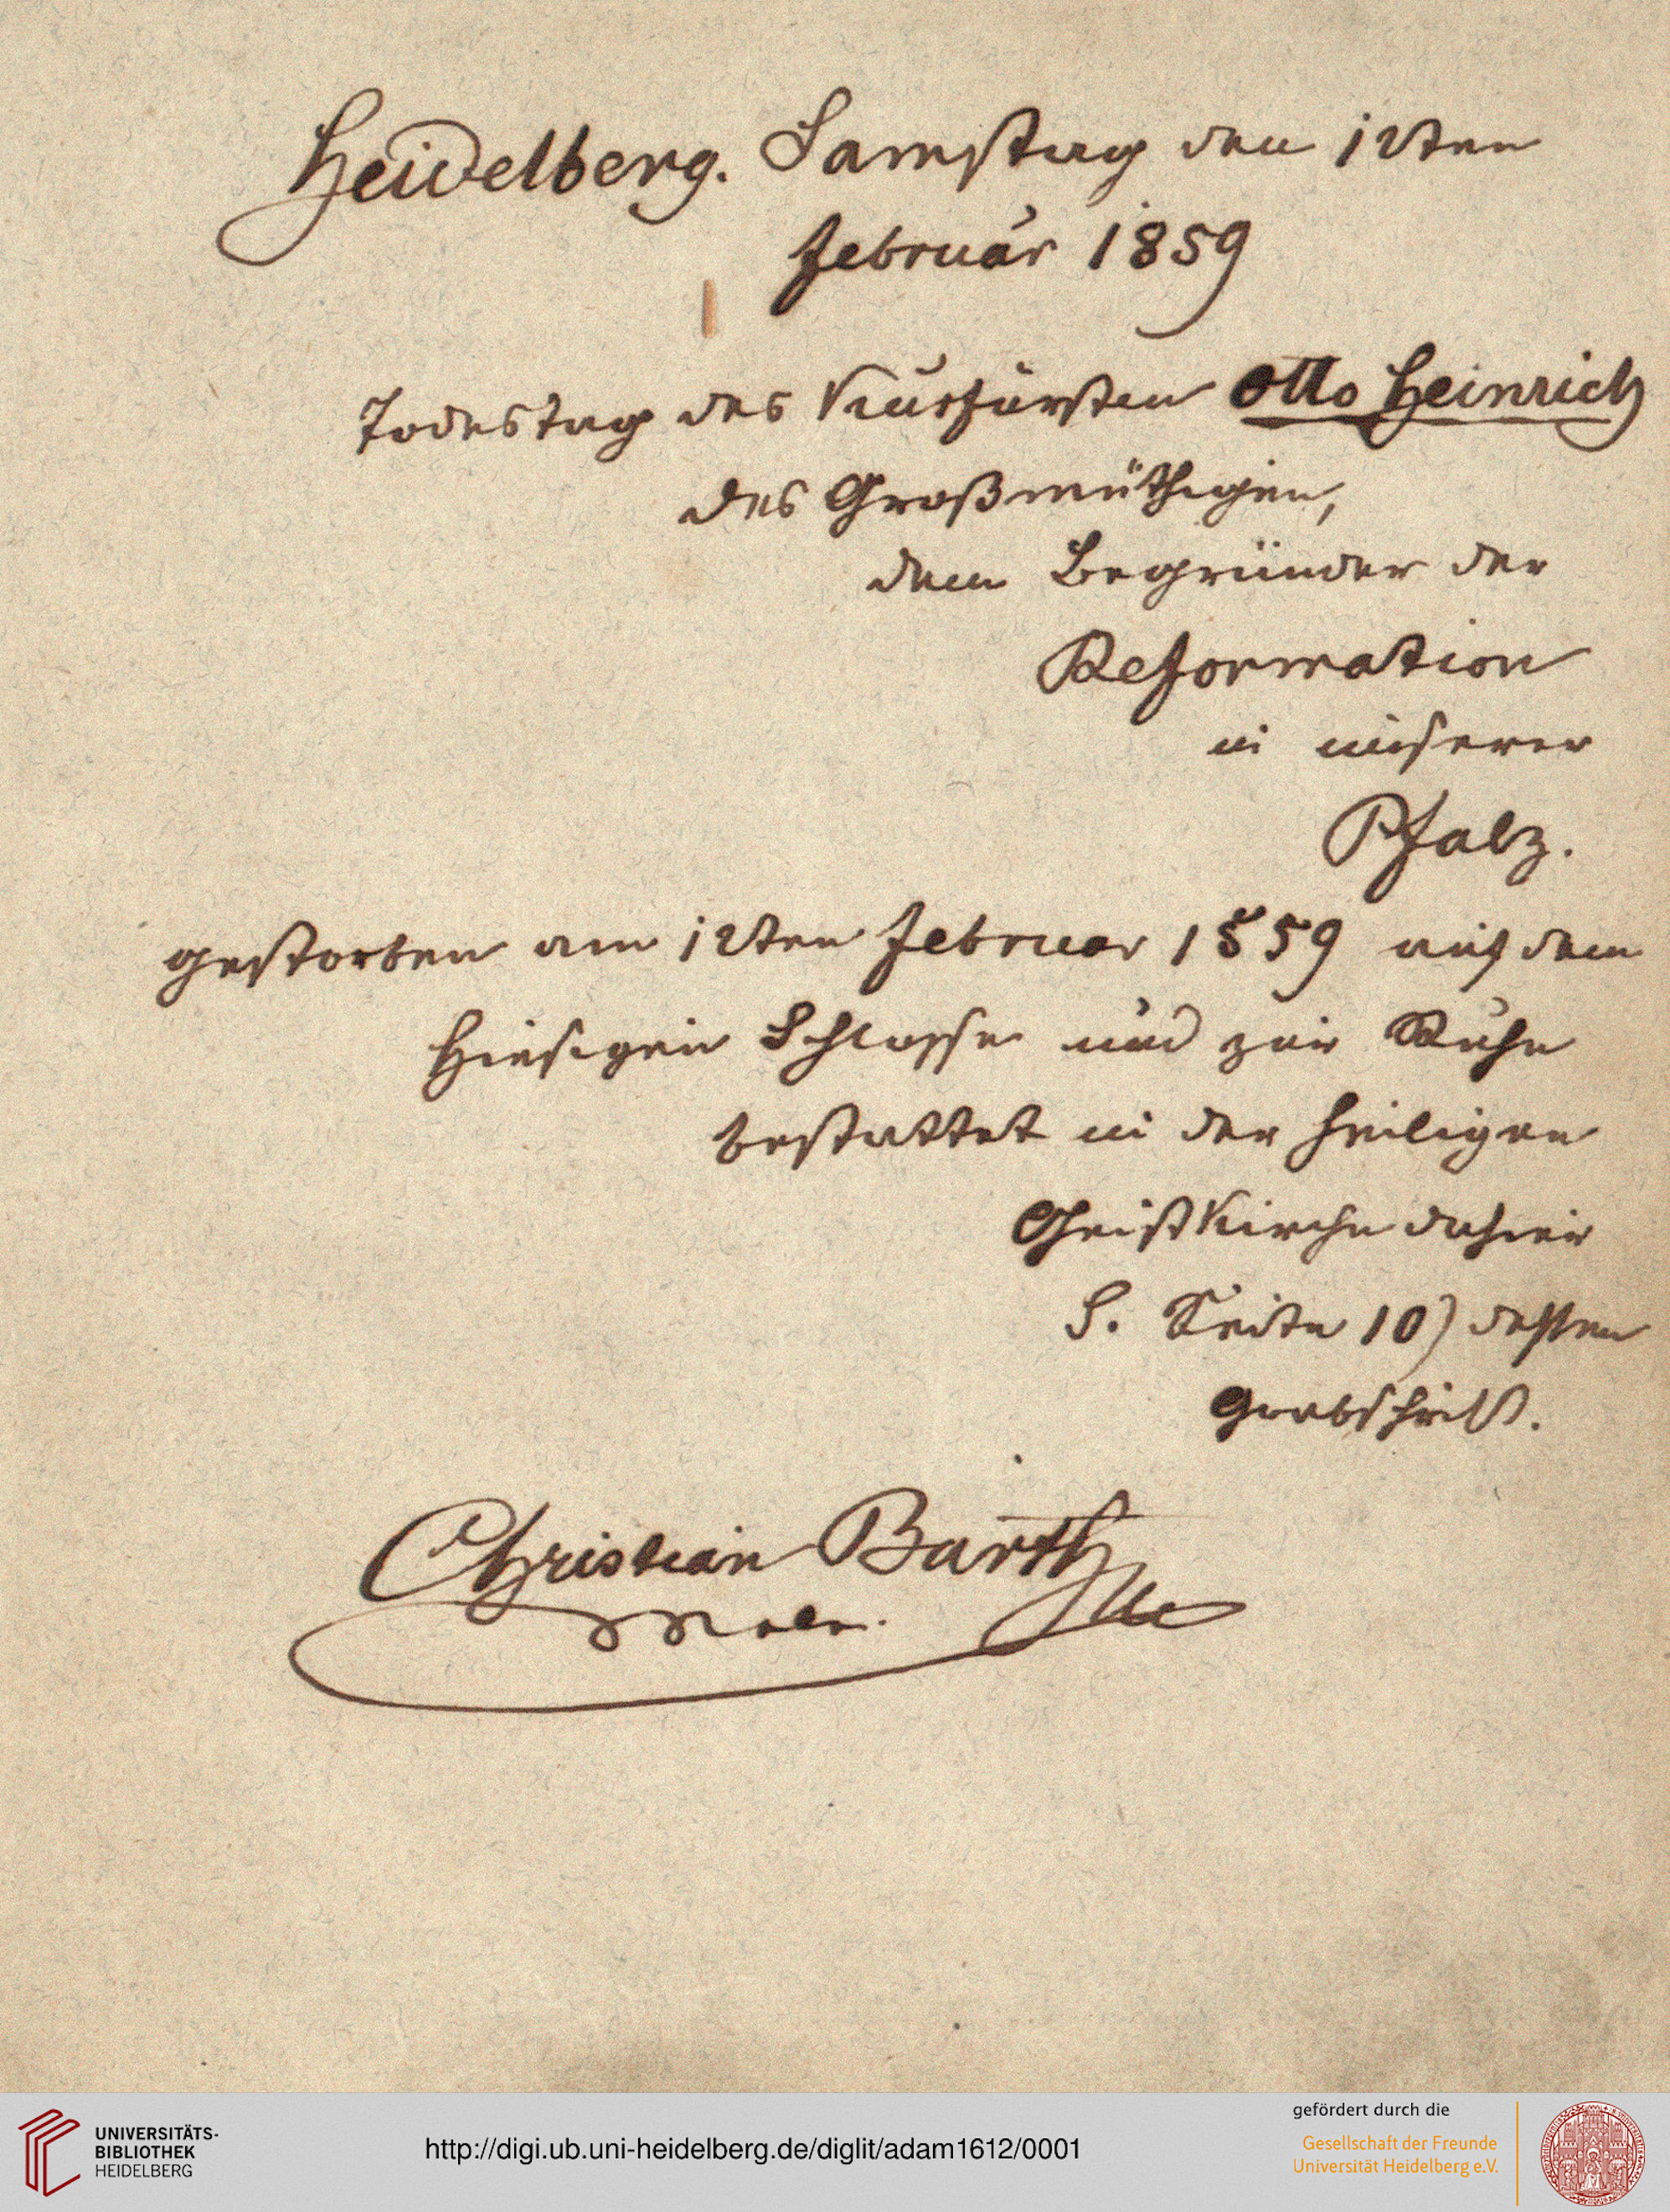 Heidelberg. Samstag den 12ten
Februar 1859
Todestag des Kurfürsten Otto Heinrich
des Großmüthigen,
dem Begründer der
Reformation
in unserer
Pfalz.
gestorben am 12ten Februar 1559 auf dem
Hiesigen Schlosse und zur Ruhe
bestattet in der heiligen
Geistkirche dahier
S. Seite 10) dessen
Grabschrift.
Christian Barth
UNIVERSITÄTS-
BIBLIOTHEK
HEIDELBERG
http://digi.ub.uni-heidelberg.de/diglit/adam1612/0001
gefördert durch die
Gesellschaft der Freunde
Universität Heidelberg e.V.